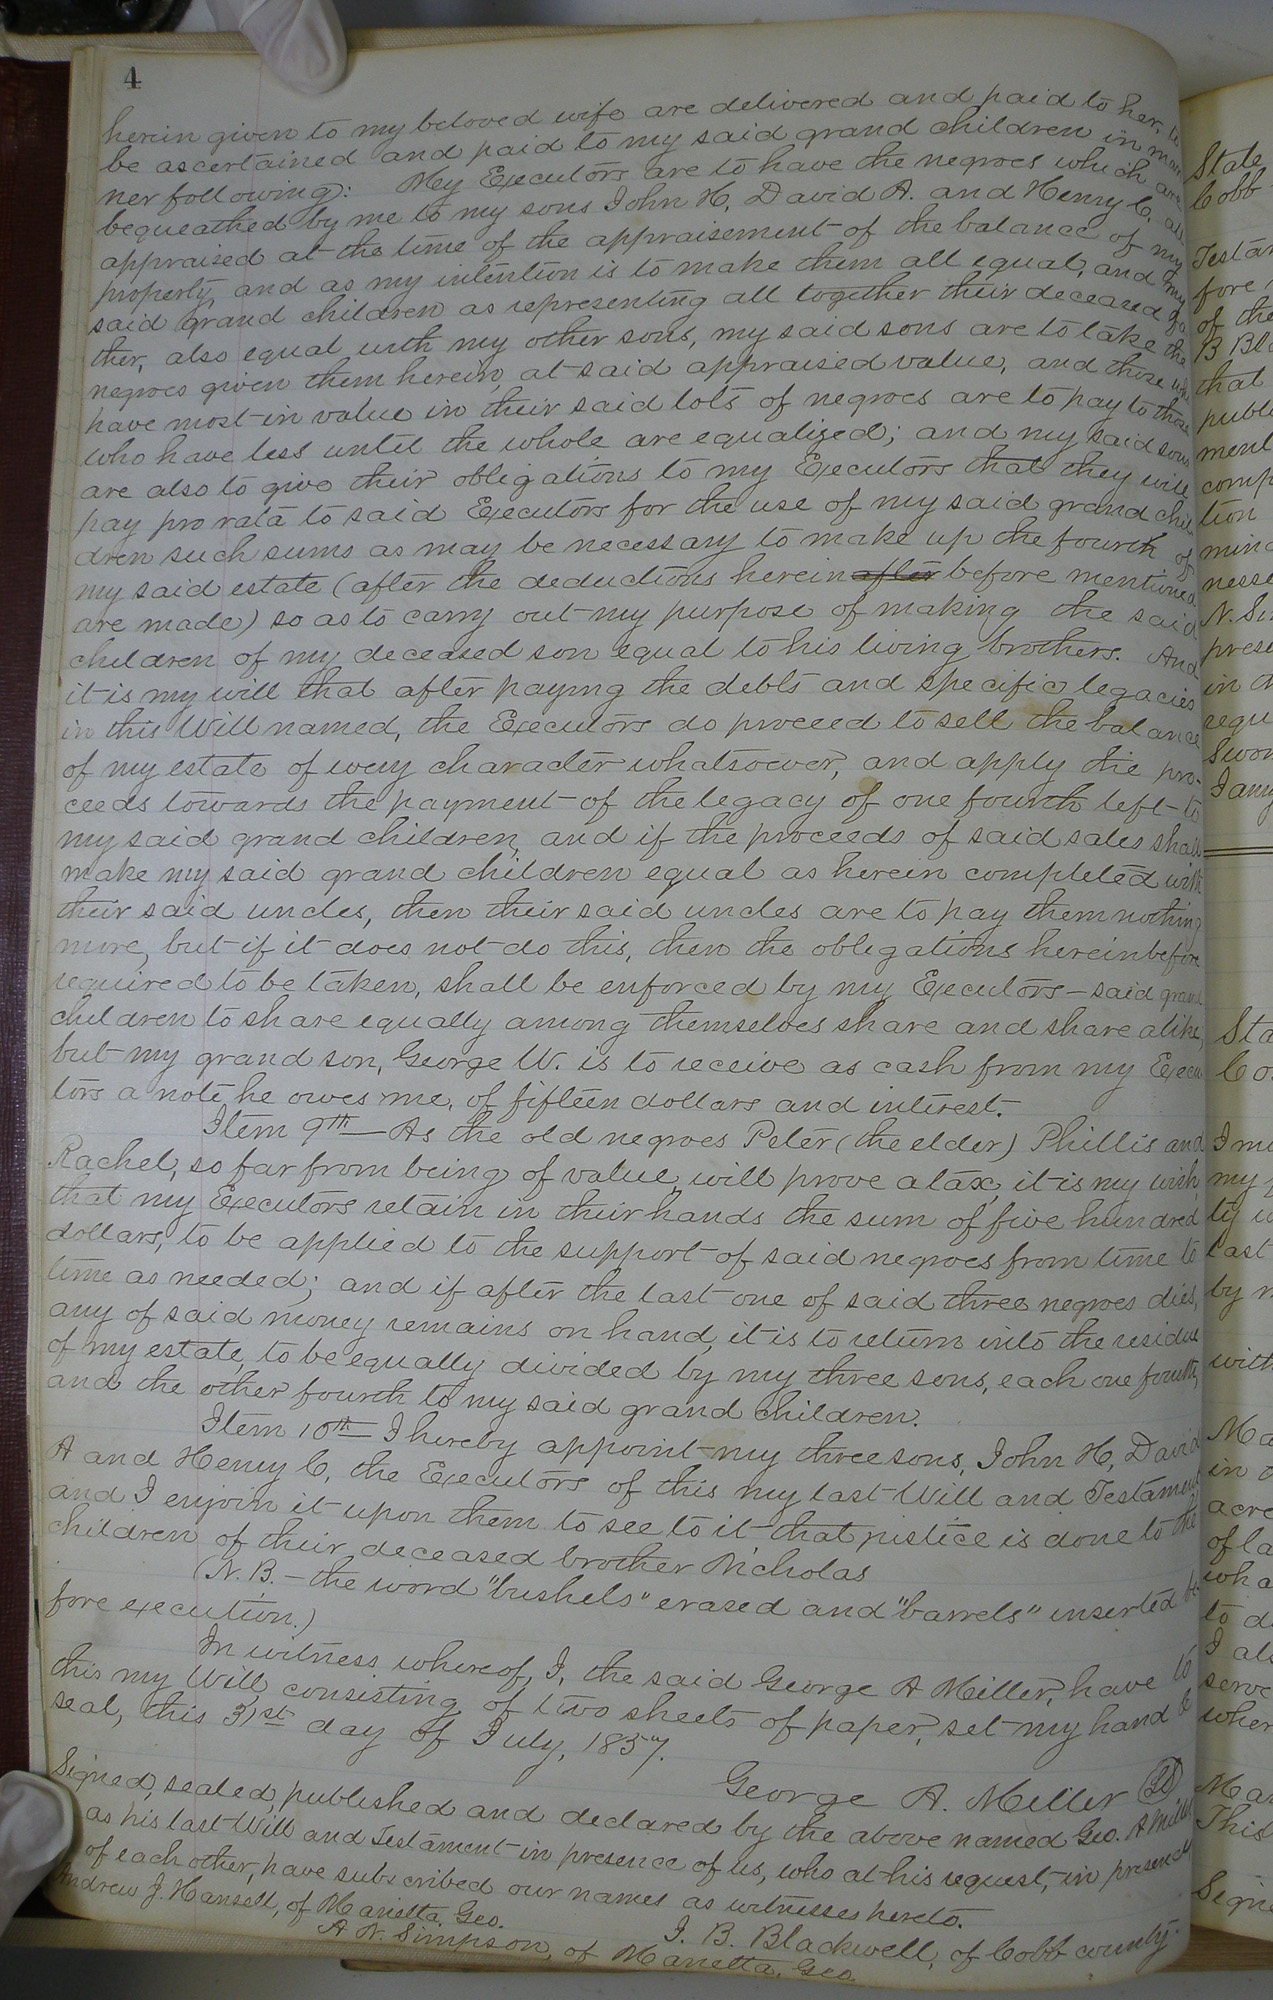 4
herein given to my beloved wife are delivered and paid to her, to
be ascertained and paid to my said grand children in man
ner following: My Executors are to have the negroes which are
bequeathed by me to my sons John H, David A. and Henry C. all
appraised at the time of the appraisement of the balance of my
property, and as my intention is to make them all equal, and my
said grand children as representing all together their deceased fa
ther, also equal with my other sons, my said sons are to take the
negroes given them herein, at said appraised value, and those who
have most in value in their said lots of negroes are to pay to those
who have less until the whole are equalized; and my said sons
are also to give their obligations to my Executors that they will
pay pro rata to said Executors for the use of my said grand chil
dren such sums as may be necessary to make up the fourth of
my said estate (after the deductions herein after before mentioned
are made) so as to carry out my purpose of making the said
children of my deceased son equal to his living brothers. And
it is my will that after paying the debts and specific legacies
in this Will named, the Executors do proceed to sell the balance
of my estate of every character whatsoever, and apply the pro-
ceeds towards the payment of the legacy of one fourth left to
my said grand children, and if the proceeds of said sales shall
make my said grand children equal as herein completed with
their said uncles, then their said uncles are to pay them nothing
more, but if it does not do this, then the obligations hereinbefore
required to be taken, shall be enforced by my Executors - said grand
children to share equally among themselves share and share alike,
but my grand son, George W. is to receive as cash from my Execu
tors a note he owes me, of fifteen dollars and interest.
Item 9th - As the old negroes Peter (the elder) Phillis and
Rachel, so far from being of value, will prove a tax, it is my wish
that my Executors retain in their hands the sum of five hundred
dollars, to be applied to the support of said negroes from time to
time as needed; and if after the last one of said three negroes dies,
any of said money remains on hand, it is to return into the residue
of my estate, to be equally divided by my three sons, each one fourth,
and the other fourth to my said grand children.
Item 10th - I hereby appoint my three sons, John H, David
A and Henry C, the Executors of this my last Will and Testament
and I enjoin it upon them to see to it that justice is done to the
children of their deceased brother Nicholas
(N. B. - the word "bushels" erased and "barrels" inserted be
fore execution.)
In witness whereof, I, the said George A Miller, have to
this my Will, consisting of two sheets of paper, set my hand &
seal, this 31st day of July, 1857.
George A. Miller (LS)
Signed, sealed, published and declared by the above named Geo. A Miller
as his last Will and Testament in presence of us, who at his request, in presence
of each other, have subscribed our names as witnesses hereto.
Andrew J. Hansell, of Marietta, Geo.
J. B. Blackwell, of Cobb county.
A. N. Simpson, of Marietta, Geo.
State
Cobb
fore
of the
that
in th
Swor
Sta
Co
my
last
by
with
in
acre
of la
wha
to d
I als
serve
wher
This
Signe